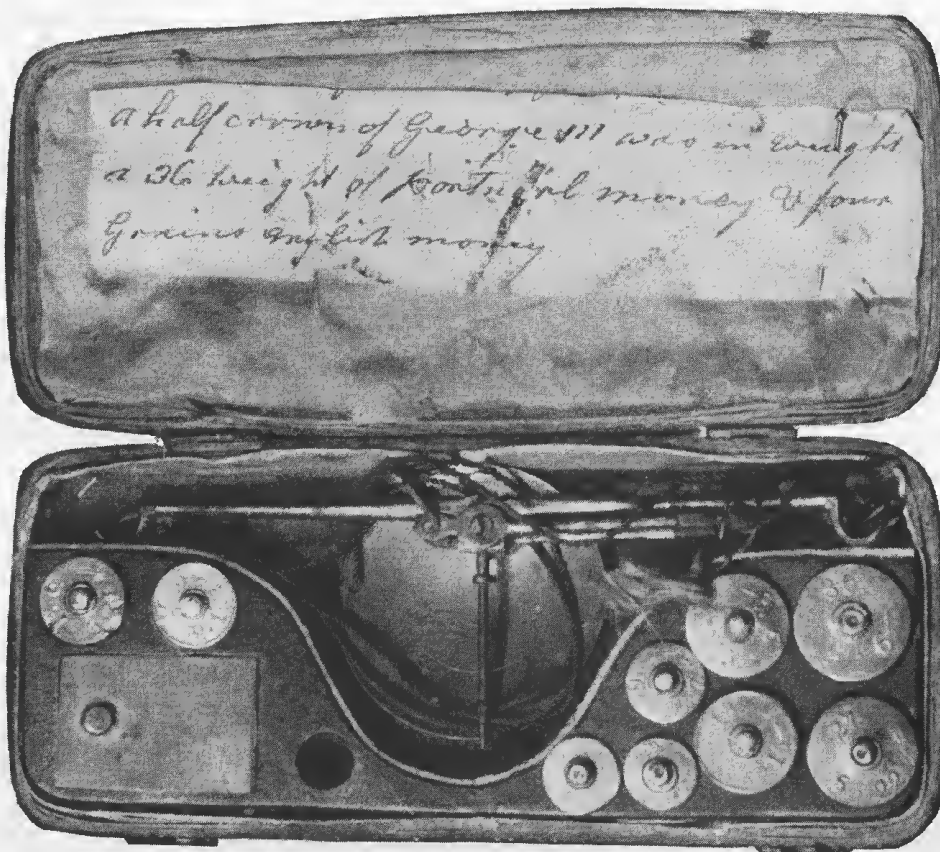 a half crown of George III was in weight
a 36 weight of portugal money & four
Grains english money